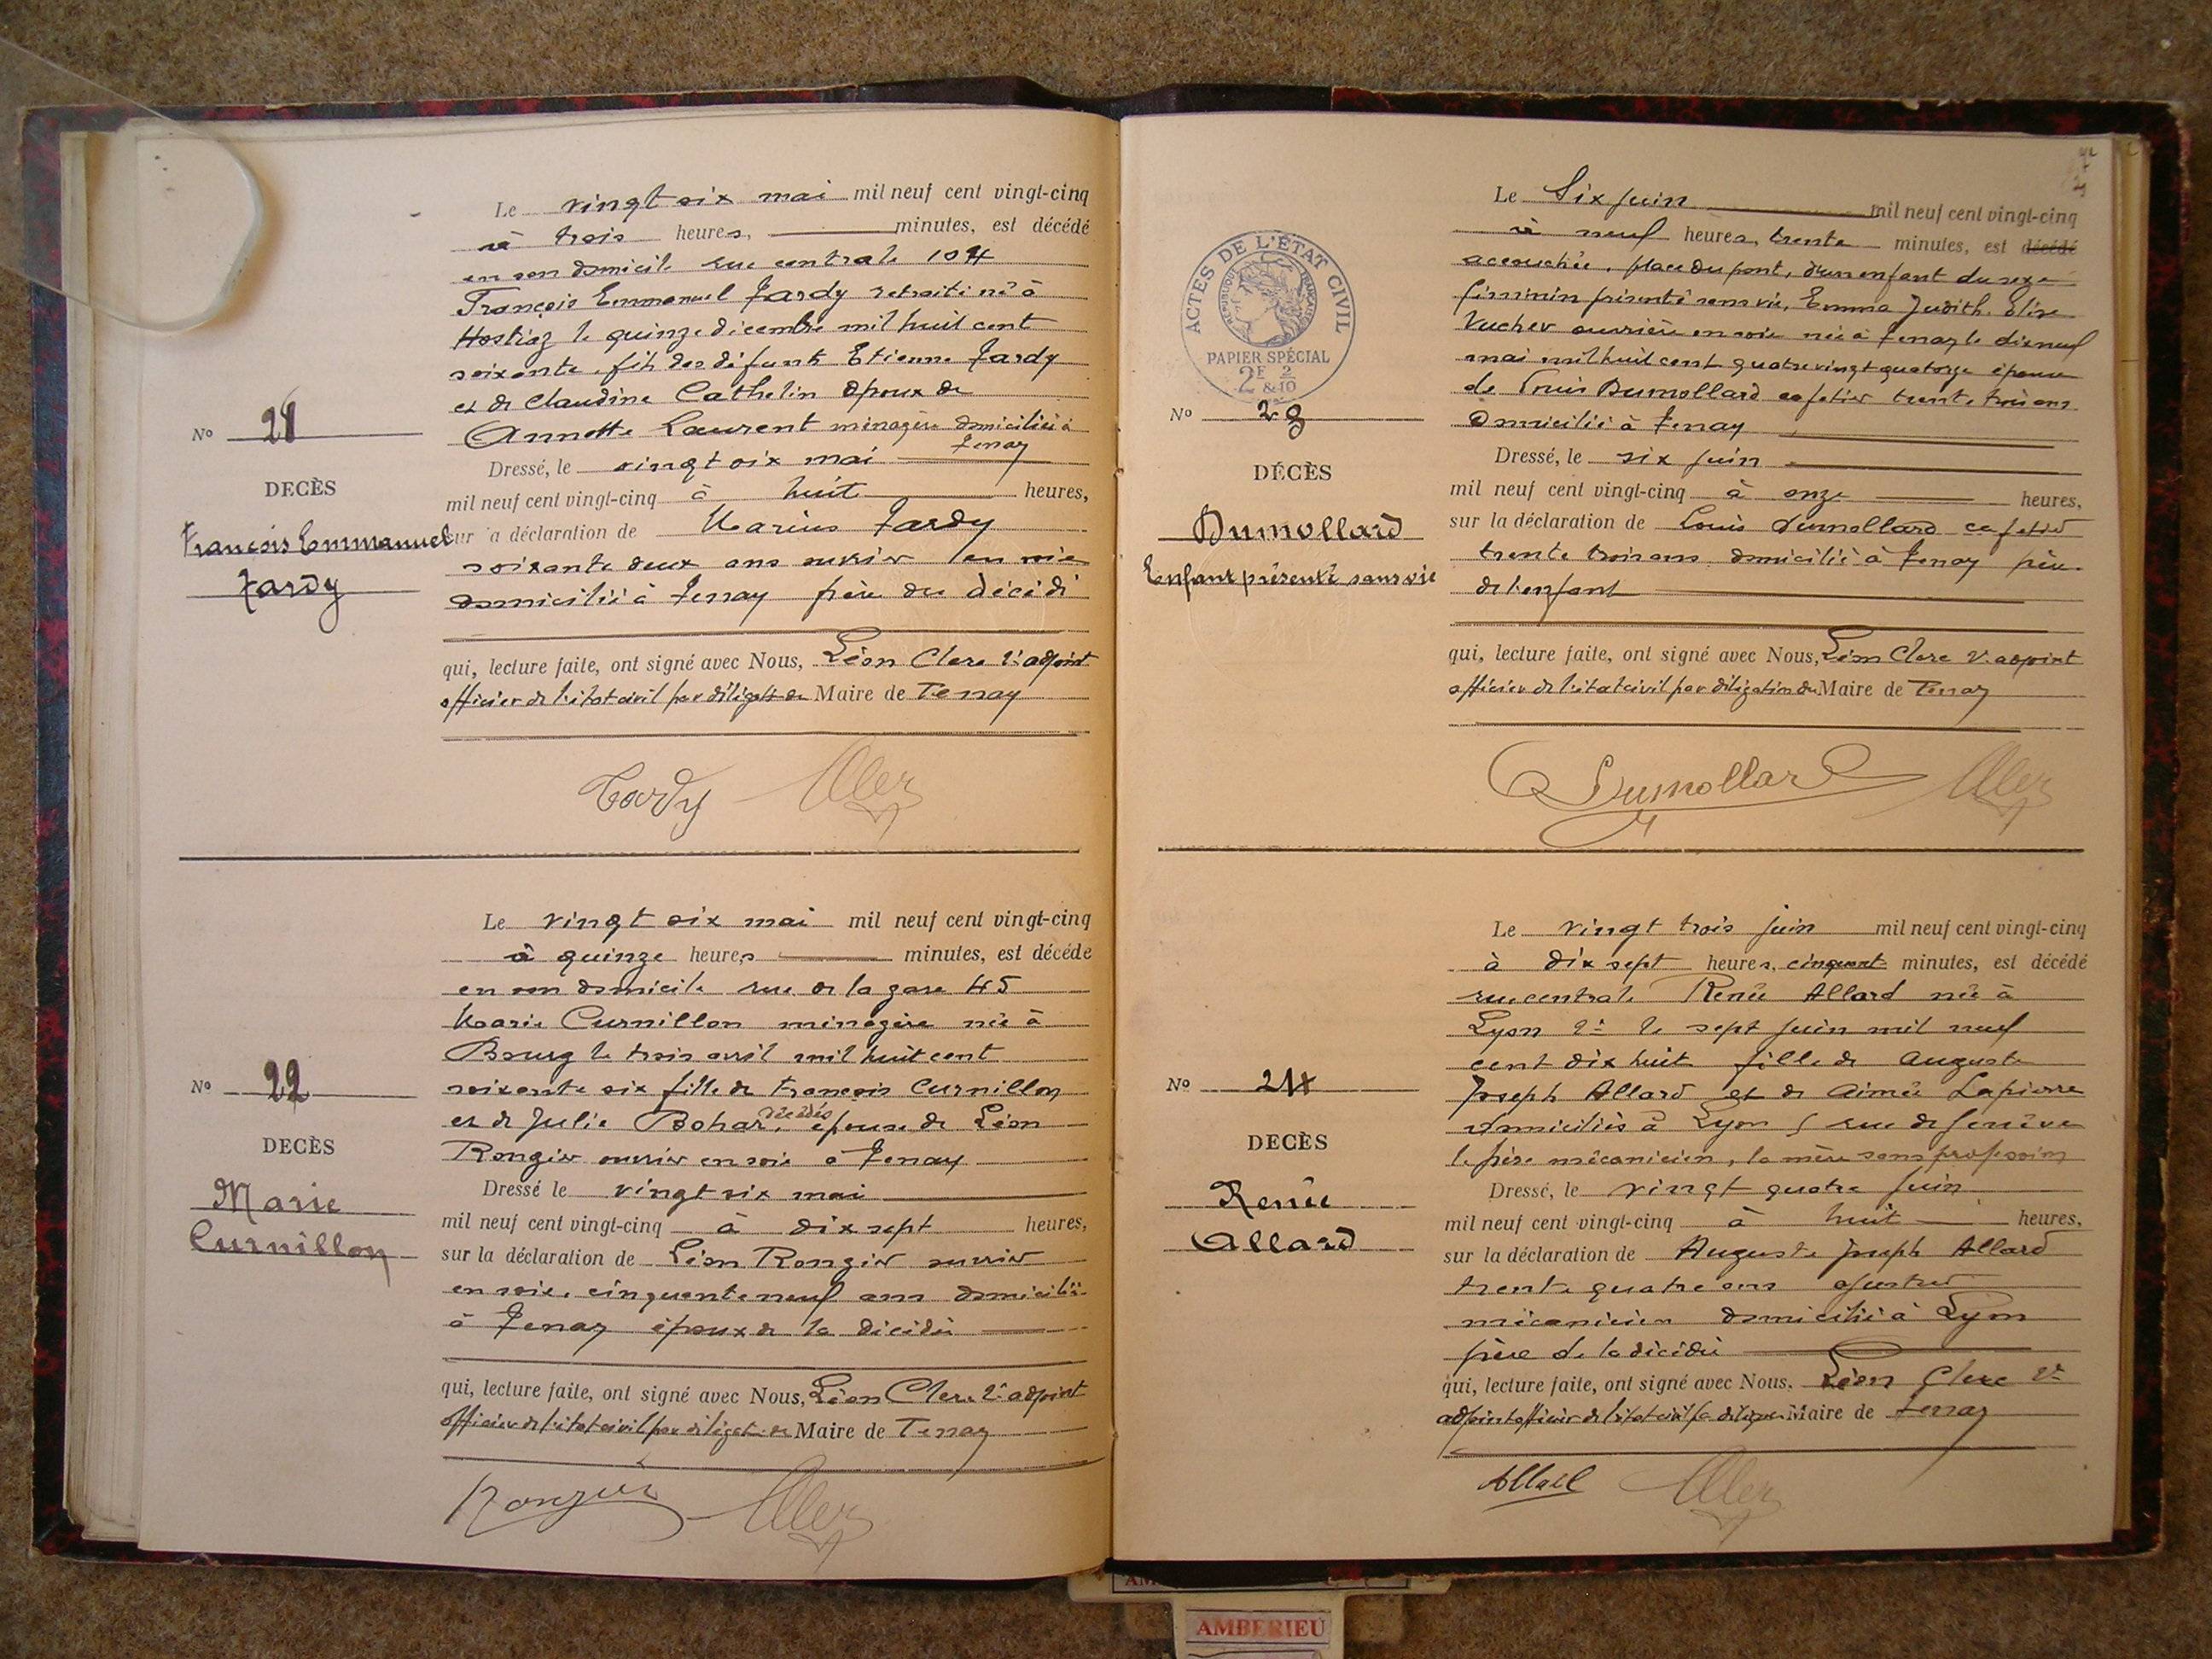 Le vingt six mai mil neuf cent vingt-cinq
à trois heures, minutes, est décédé
en son domicile rue centrale 104
François Emmanuel Tardy retraité né à
Hostiaz le quinze décembre mil huit cent
soixante, fils des défunts Etienne Tardy
et de Claudine Cathelin époux de
Annette Laurent ménagère domiciliée à
Tenay
Dressé, le vingt six mai
mil neuf cent vingt-cinq à huit heures,
sur la déclaration de Marius Tardy
soixante deux ans ouvrier en soie
domicilié à Tenay frère du décédé
qui, lecture faite, ont signé avec Nous, Léon Clerc 2e adjoint
officier de l'état civil par délégat. du Maire de Tenay
Tardy
No 21
DECÈS
François Emmanuel
Tardy
Le vingt six mai mil neuf cent vingt-cinq
à quinze heures minutes, est décédé
en son domicile rue de la gare 45
Marie Curnillon ménagère née à
Bourg le trois avril mil huit cent
soixante six fille de François Curnillon
et de Julie Bohar, décédés épouse de Léon
Rongier ouvrier en soie à Tenay
Dressé le vingt six mai
mil neuf cent vingt-cinq à dix sept heures,
sur la déclaration de Léon Rongier ouvrier
en soie, cinquante neuf ans domicilié
à Tenay époux de la décédée
qui, lecture faite, ont signé avec Nous, Léon Clerc 2e adjoint
officier de l'état civil par délégat. du Maire de Tenay
Rongier
No 22
DECÈS
Marie
Curnillon
Le Six juin mil neuf cent vingt-cinq
à neuf heures, trente minutes, est décédé
accouchée, place du pont, d'un enfant du sexe
féminin présenté sans vie, Emma Judith Elise
Vucher ouvrière en soie née à Tenay le dix neuf
mai mil huit cent quatre vingt quatorze épouse
de Louis Dumollard cafetier trente trois ans
domicilié à Tenay
Dressé, le six juin
mil neuf cent vingt-cinq à onze heures,
sur la déclaration de Louis Dumollard cafetier
trente trois ans domicilié à Tenay père
de l'enfant
qui, lecture faite, ont signé avec Nous, Léon Clerc 2e adjoint
officier de l'état civil par délégation du Maire de Tenay
Dumollard
ACTES DE L'ÉTAT CIVIL
RÉPUBLIQUE FRANÇAISE
PAPIER SPÉCIAL
2F 2
&10
No 23
DÉCÈS
Dumollard
Enfant présenté sans vie
Le vingt trois juin mil neuf cent vingt-cinq
à dix sept heures, cinquante minutes, est décédé
rue centrale Renée Allard née à
Lyon 2e le sept juin mil neuf
cent dix huit fille de Auguste
Joseph Allard et de Aimée Lapierre
domiciliés à Lyon 5 rue de Genève
le père mécanicien, la mère sans profession
Dressé, le vingt quatre juin
mil neuf cent vingt-cinq à huit heures,
sur la déclaration de Auguste Joseph Allard
trente quatre ans ajusteur
mécanicien domicilié à Lyon
père de la décédée
qui, lecture faite, ont signé avec Nous, Léon Clerc 2e
adjoint officier de l'état civil Maire de Tenay
Allard
No 24
DECÈS
Renée
Allard
AMBERIEU